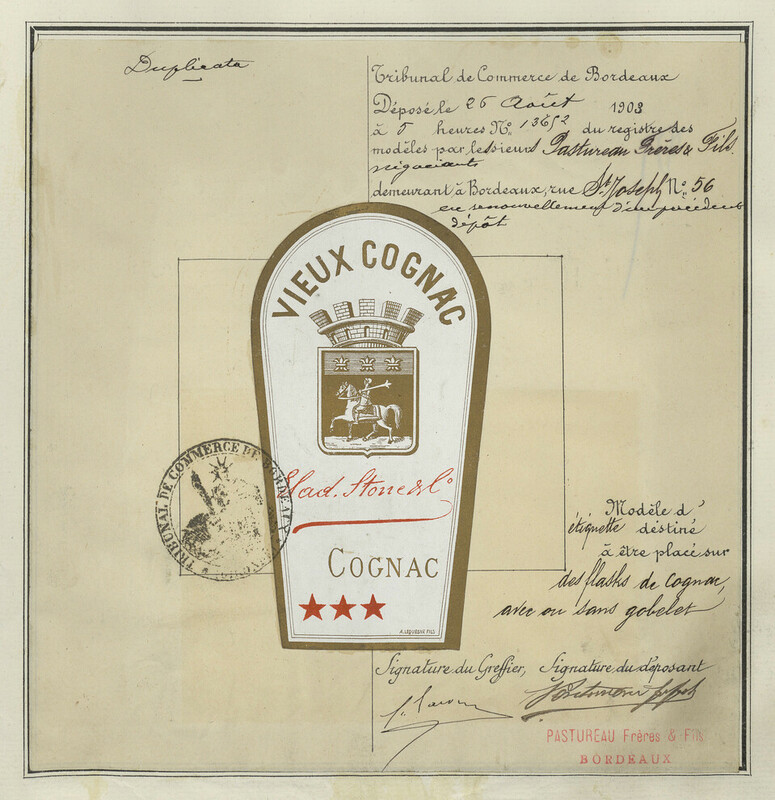 Duplicata
Tribunal de Commerce de Bordeaux
Déposé le 26 Août 1903
à 5 heures No. 13652 du registre des
modèles par les sieurs Pastureau Frères & Fils
négociants
demeurant à Bordeaux, rue St Joseph No. 56
en renouvellement d'un précédent
dépôt
VIEUX COGNAC
Stone & Co
COGNAC
A. LEQUESNE FILS
TRIBUNAL DE COMMERCE DE BORDEAUX
Modèle d'
étiquette destiné
à être placé sur
des flasks de cognac,
avec ou sans gobelet
Signature du Greffier, Signature du déposant
PASTUREAU Frères & Fils
BORDEAUX